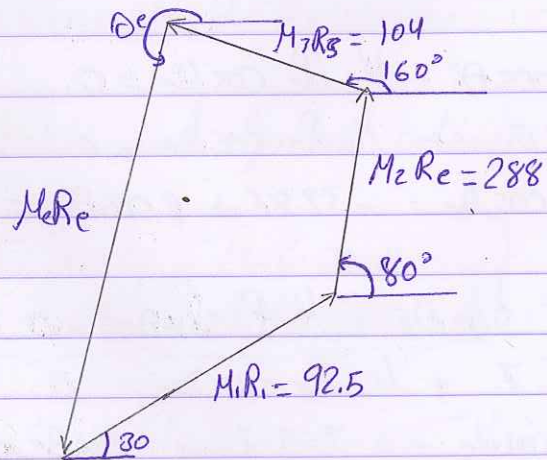 θe
M₃R₃ = 104
160°
M₂Re = 288
MeRe
80°
M₁R₁ = 92.5
30